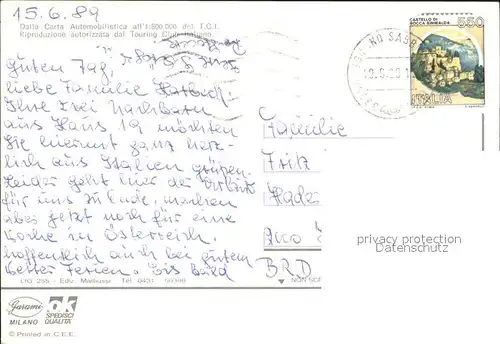 15.6.89
Dalla Carta Automobilistica all'1:800.000 del T.C.I.
Riproduzione autorizzata dal Touring Club Italiano.
Guten Tag,
liebe Familie
Ihre drei Nachbarn
aus Haus 19 möchten
Sie hiermit ganz herz-
lich aus Italien grüßen.
Leider geht hier der Urlaub
für uns zu Ende, machen
aber jetzt noch für eine
Woche in Österreich,
hoffentlich auch bei gutem
Wetter Ferien. Bis bald
LIG 255 - Ediz. Tel. 0431
Garami
MILANO
OK
SPEDISCI
QUALITÀ
© Printed in C.E.E.
CASTELLO DI
ROCCA SINIBALDA
550
ITALIA
NO SABB
Familie
Fritz
BRD
NON SC
privacy protection
Datenschutz